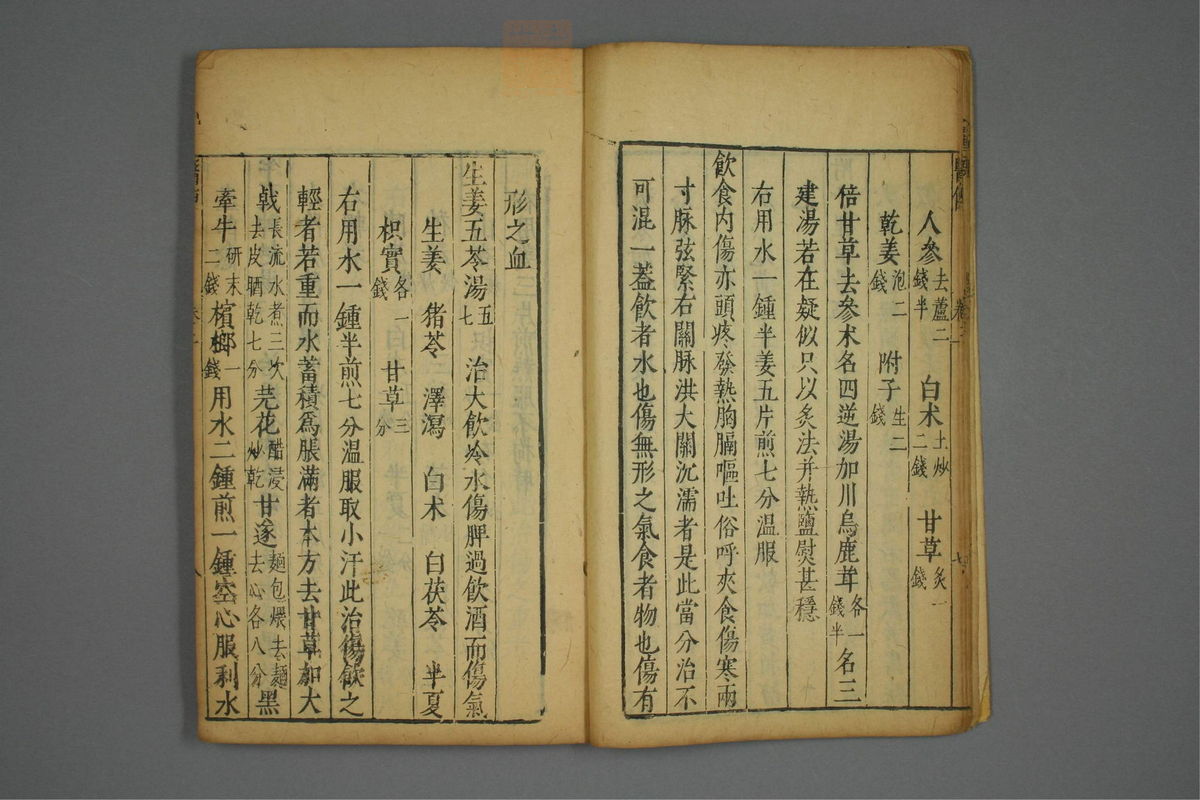 人參去蘆二錢半 白术土炒二錢 甘草炙一錢
乾姜泡二錢 附子生二錢
倍甘草去參术名四逆湯加川烏鹿茸各一錢半名三
建湯若在疑似只以炙法并熱鹽熨甚穩
右用水一鍾半姜五片煎七分温服
飲食内傷亦頭疼發熱胸膈嘔吐俗呼夾食傷寒兩
寸脉弦緊右關脉洪大關沉濡者是此當分治不
可混一蓋飲者水也傷無形之氣食者物也傷有
形之血
生姜五苓湯五七 治大飲冷水傷脾過飲酒而傷氣
生姜 猪苓 澤瀉 白术 白茯苓 半夏
枳實各一錢 甘草三分
右用水一鍾半煎七分温服取小汗此治傷飲之
輕者若重而水蓄積爲脹滿者本方去甘草加大
戟長流水煮三次去皮晒乾七分 芫花醋浸炒乾 甘遂麵包煨去麵去心各八分 黑
牽牛研末二錢 檳榔一錢 用水二鍾煎一鍾空心服利水